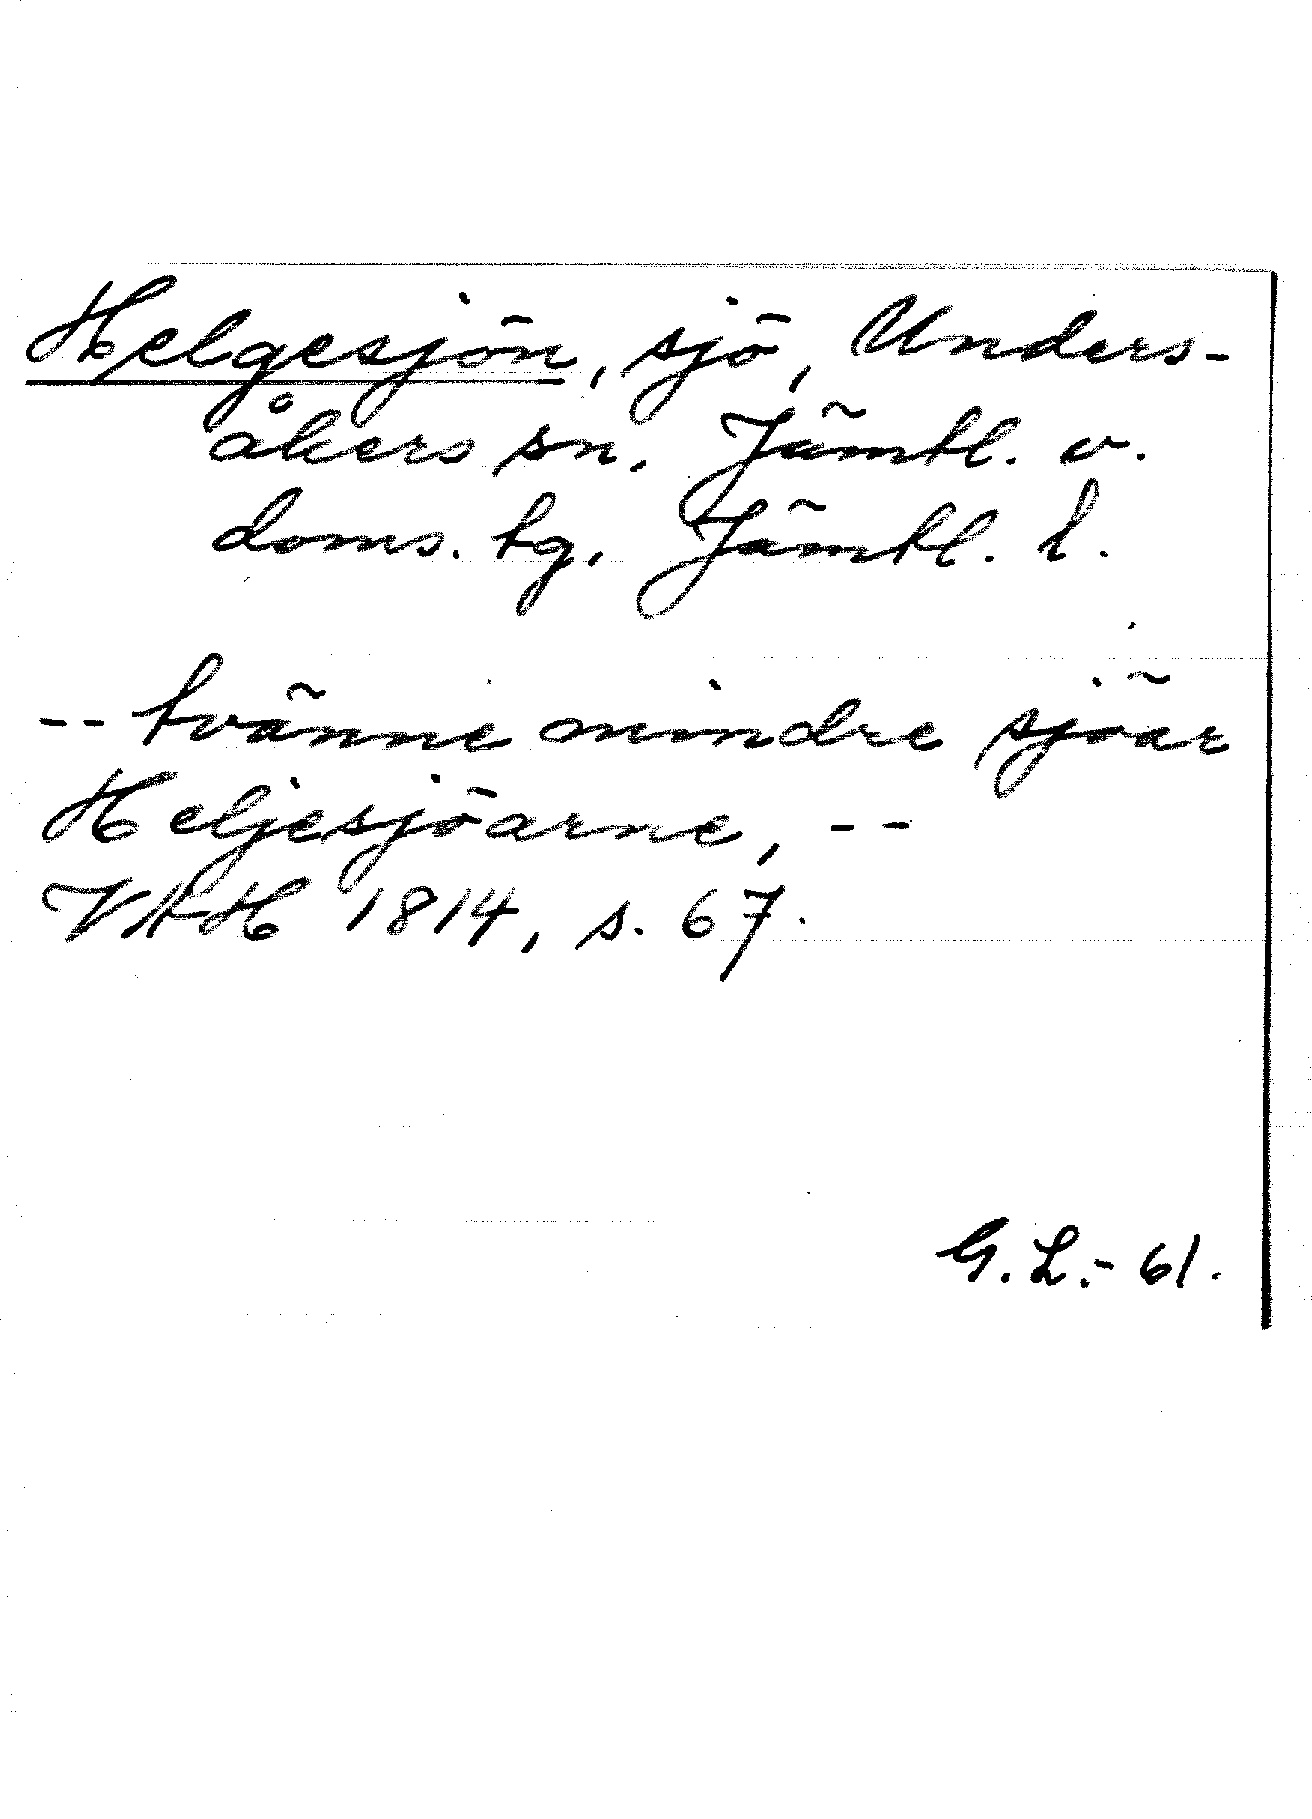 Helgesjön, sjö, Unders-
åkers sn. Jämtl. v.
doms. tg. Jämtl. l.
-- tvänne mindre sjöar
Heljesjöarne, --
VAH 1814, s. 67.
G. L. - 61.